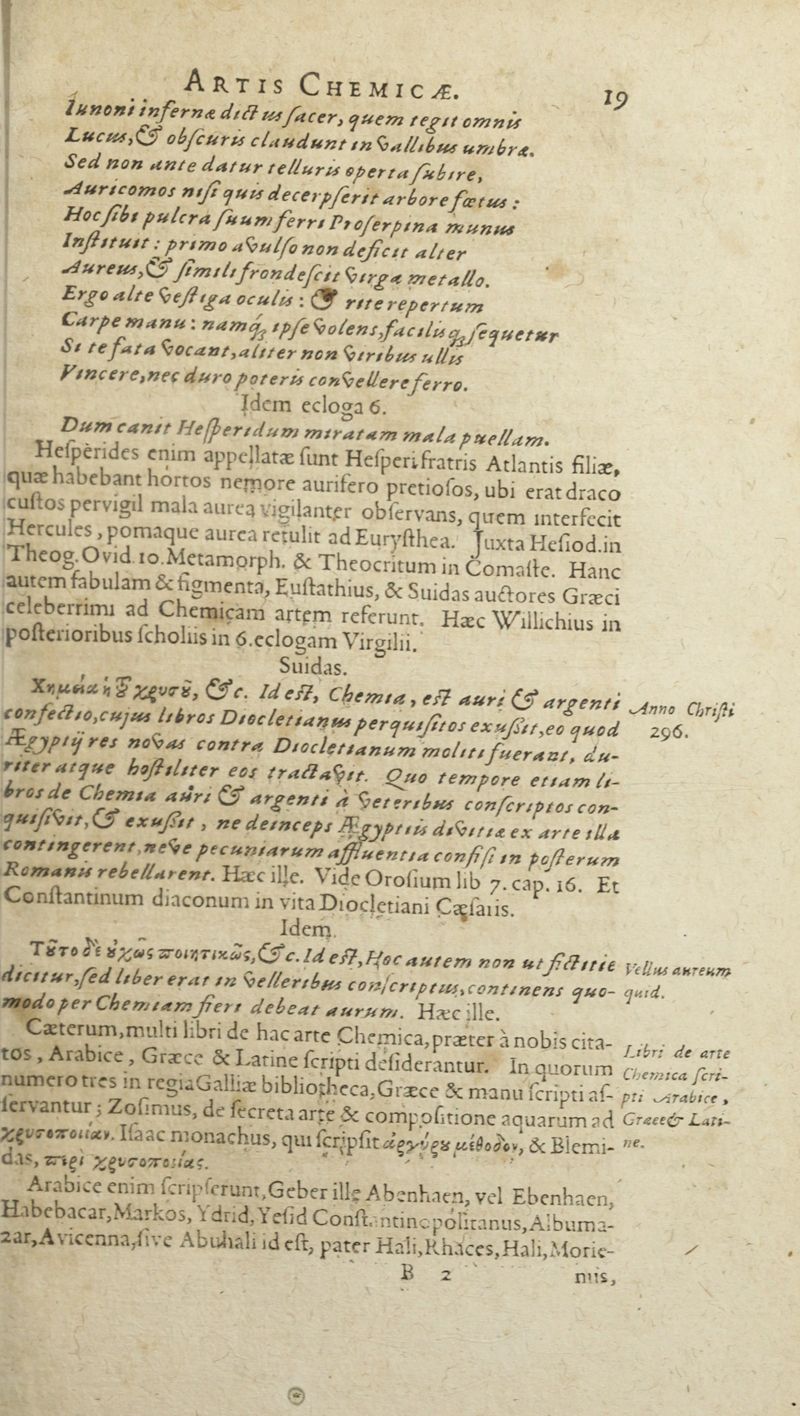 ARTIS CHEMICÆ. 19
Iunoni infernæ dictus sacer, quem tegit omnis
Lucus, & obscuris claudunt in vallibus umbræ.
Sed non ante datur telluris operta subire,
Auricomos nisi quis decerpserit arbore fœtus:
Hoc sibi pulcra suum ferri Proserpina munus
Instituit: primo avulso non deficit alter
Aureus, & simili frondescit virga metallo.
Ergo alte vestiga oculis: & rite repertum
Carpe manu: namq; ipse volens, facilisq; sequetur
Si te fata vocant, aliter non viribus ullis
Vincere, nec duro poteris convellere ferro.
Idem ecloga 6.
Dum canit Hesperidum miratam mala puellam.
Hesperides enim appellatæ sunt Hesperi fratris Atlantis filiæ,
quæ habebant hortos nemore aurifero pretiosos, ubi erat draco
custos pervigil mala aurea vigilanter observans, quem interfecit
Hercules, pomaque aurea retulit ad Eurysthea. Juxta Hesiod. in
Theog. Ovid. 10. Metamorph. & Theocritum in Comaste. Hanc
autem fabulam & figmenta, Eustathius, & Suidas auctores Græci
celeberrimi ad Chemicam artem referunt. Hæc Willichius in
posterioribus scholiis in 6. eclogam Virgilii.
Suidas.
&c. Id est, Chemia, est auri & argenti
confectio, cujus libros Diocletianus perquisitos exussit, eo quod
Ægyptij res novas contra Diocletianum moliti fuerant, du-
riter atque hostiliter eos tractavit. Quo tempore etiam li-
bros de Chemia auri & argenti à veteribus conscriptos con-
quisivit, & exussit, ne deinceps Ægyptiis divitiæ ex arte illa
contingerent, neve pecuniarum affluentia confisi in posterum
Romanis rebellarent. Hæc ille. Vide Orosium lib 7. cap. 16. Et
Constantinum diaconum in vita Diocletiani Cæsaris.
Anno Christi
296.
Idem.
Τȣτο δὲ ȣχ ὡς ποιητικῶς, &c. Id est, Hoc autem non ut fictitie
dicitur, sed liber erat in velleribus conscriptus, continens quo-
modo per Chemiam fieri debeat aurum. Hæc ille.
Vellus aureum
quid.
Cæterum, multi libri de hac arte Chemica, præter à nobis cita-
tos, Arabice, Græce & Latine scripti desiderantur. In quorum
numero tres in regia Galliæ bibliotheca, Græce & manu scripti as-
servantur; Zosimus, de secreta arte & compositione aquarum ad
χρυσοποιίαν. Isaac monachus, qui scripsit ἀργύρȣ μέθοδον, & Blemi-
das, περὶ χρυσοποιίας.
Libri de arte
Chemica scri-
pti Arabice,
Græce & Lati-
ne.
Arabice enim scripserunt, Geber ille Abenhaen, vel Ebenhaen,
Habebacar, Markos, Ydrid, Yesid Constantinopolitanus, Albuma-
zar, Avicenna, sive Abuhali id est, pater Hali, Rhaces, Hali, Morie-
B 2 nus,